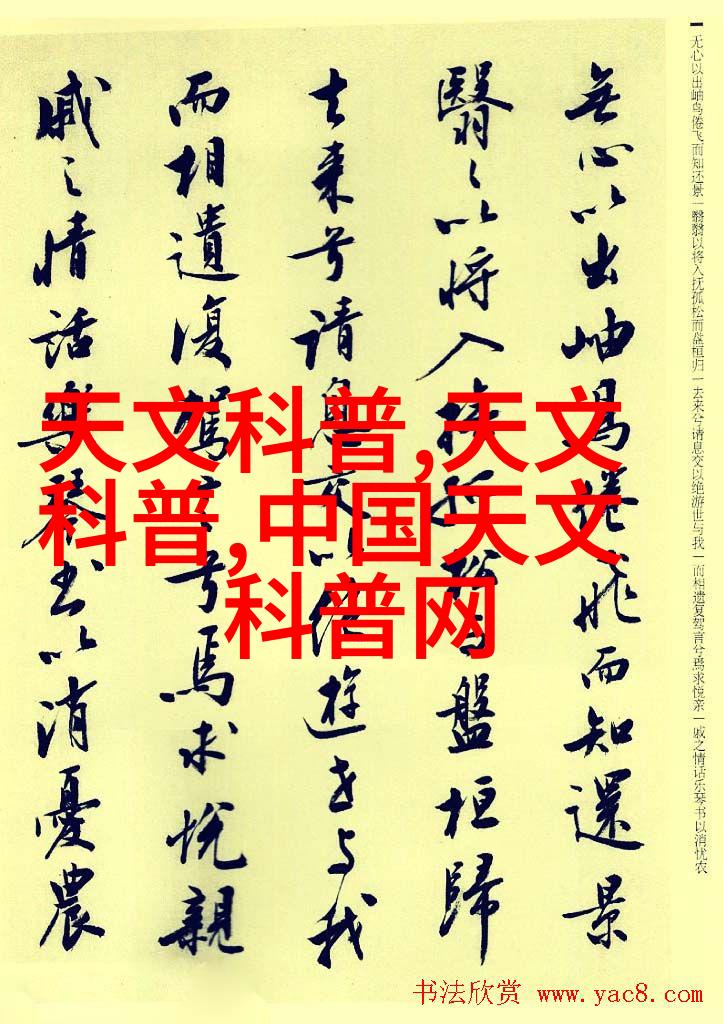 无心以出岫鸟倦飞而知还景一翳翳以将入抚孤松而盘桓归一去来兮请息交以绝游世与我一而相遗复驾言兮焉求悦亲一戚之情话乐琴书以消忧农
無心以出岫鳥倦飛而知還景
翳々以將入撫孤松而盤桓歸
去来兮請息交以絶遊世与我
而相遺復駕言兮焉求悦親
戚之情話樂琴書以消憂農
天文科普,天文
科普,中国天文
科普网
书法欣赏 www.yac8.com